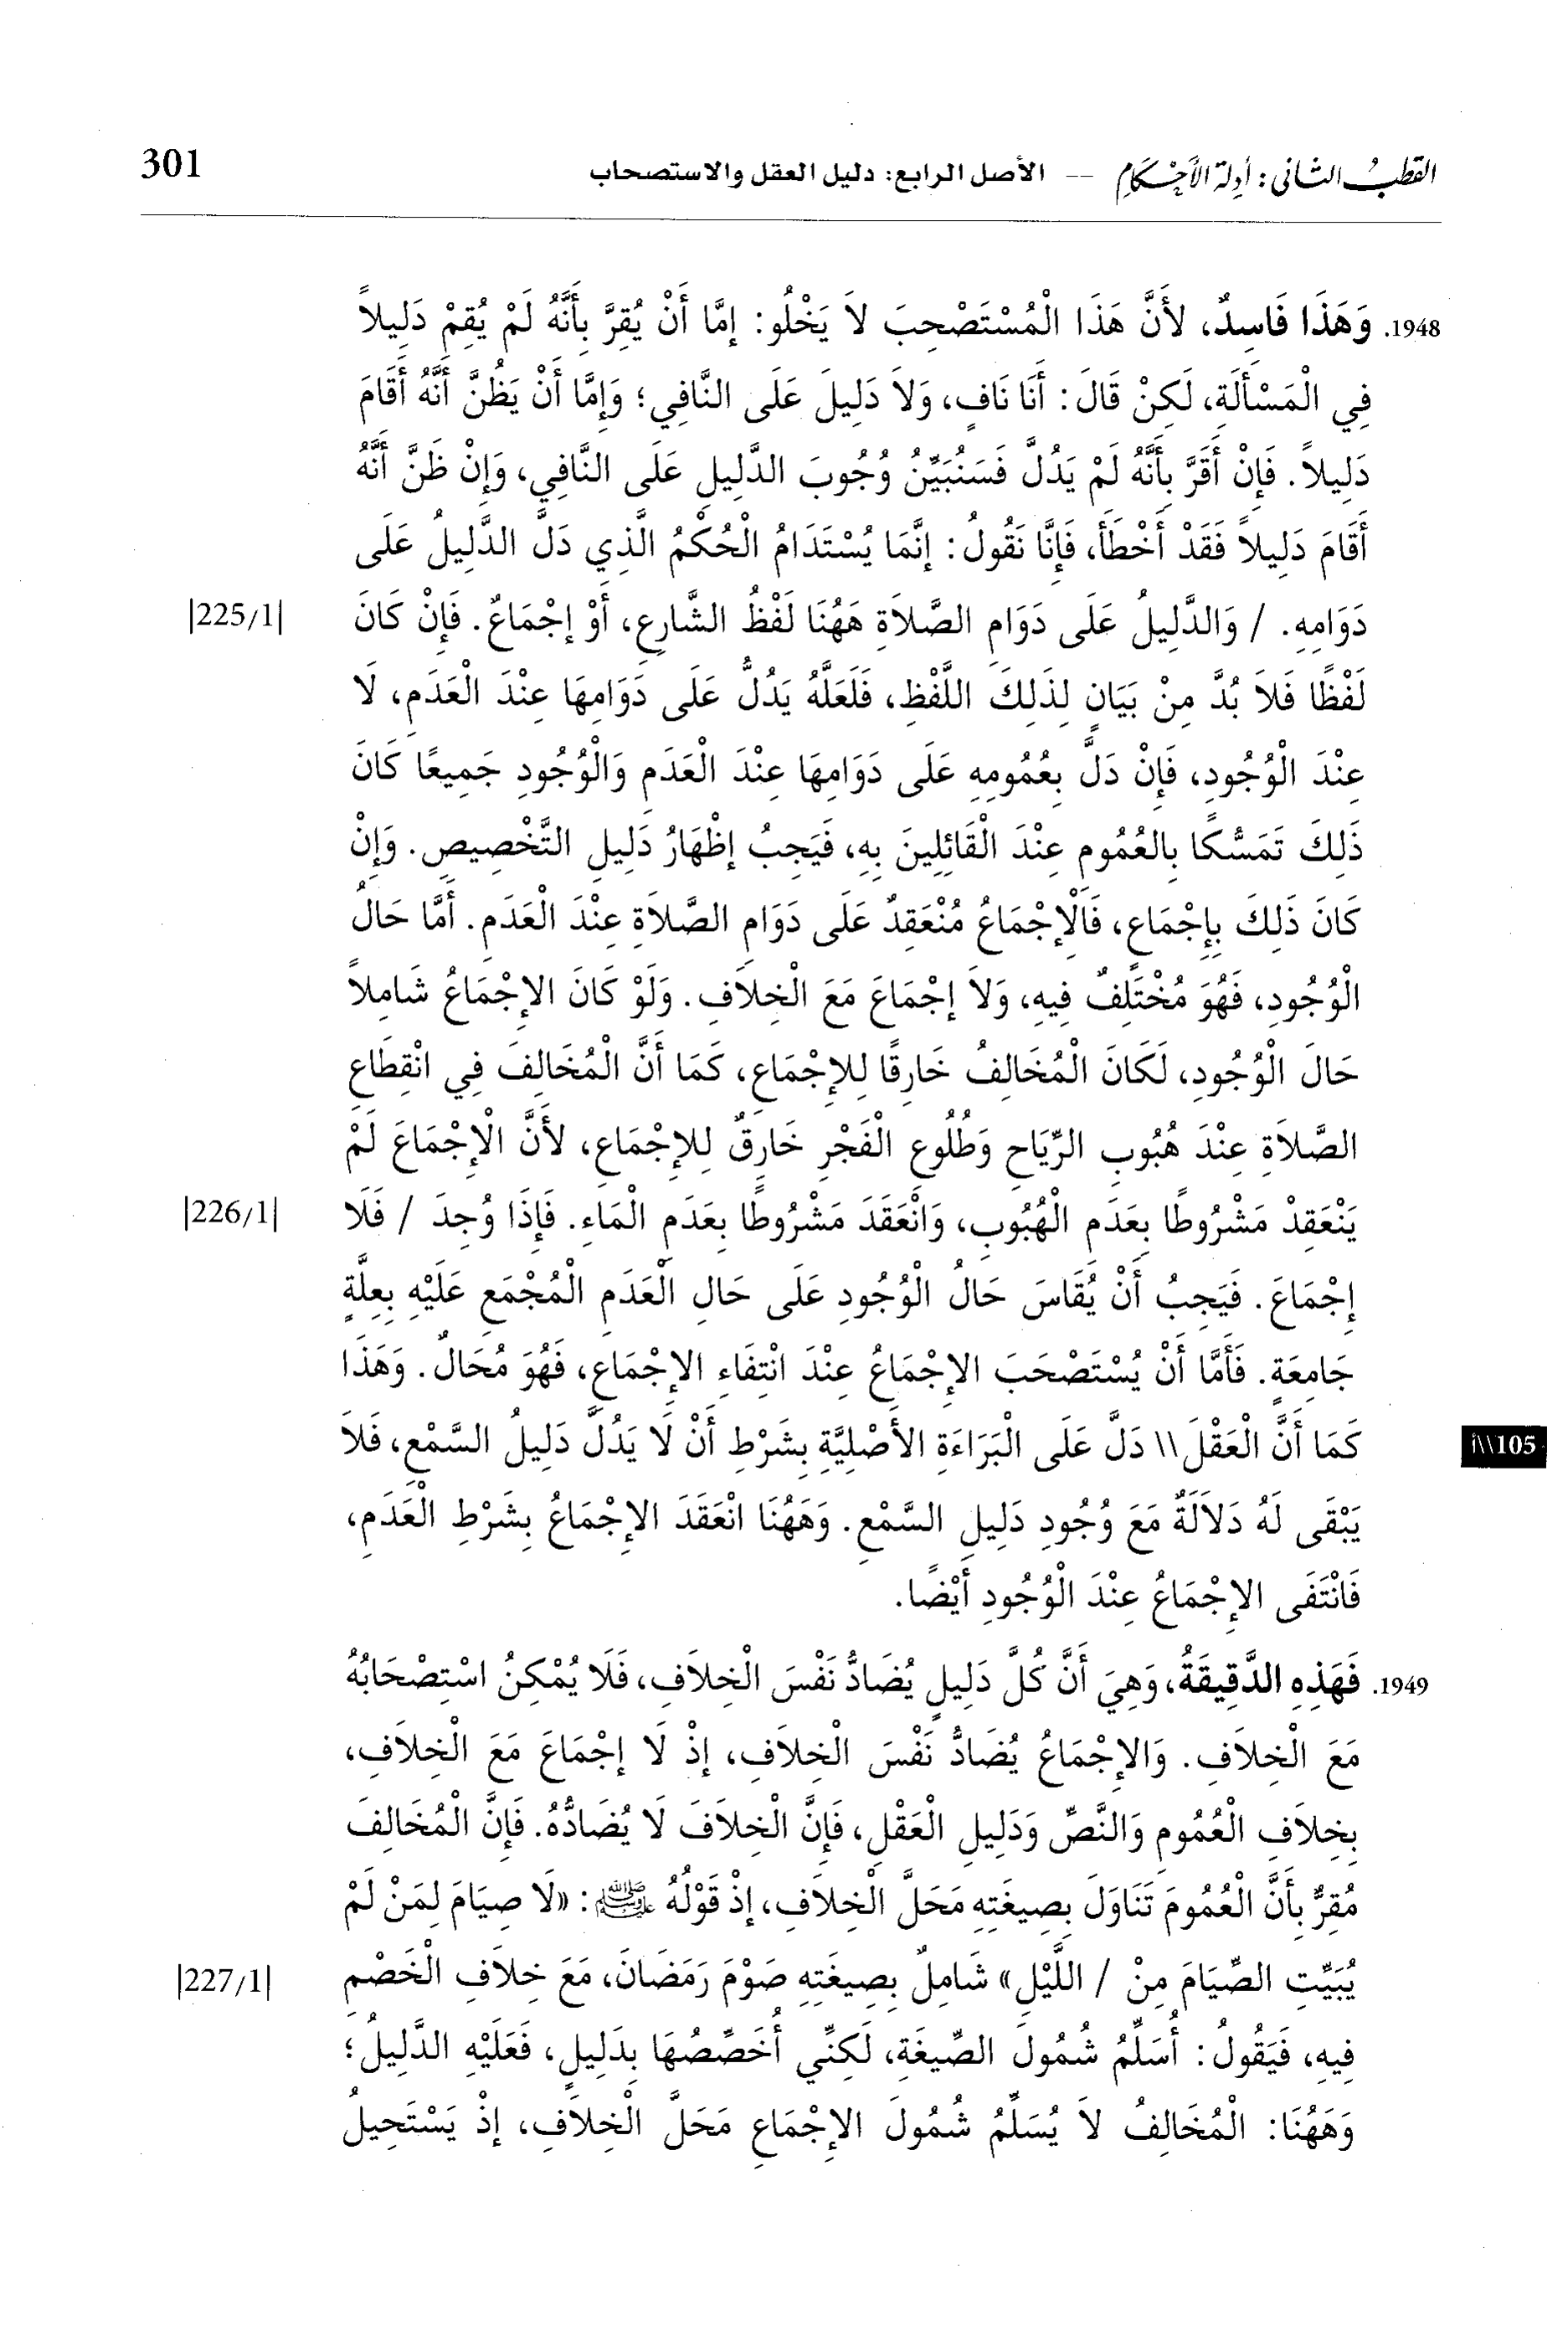 القطب الثاني: أدلة الأحكام -- الأصل الرابع: دليل العقل والاستصحاب 301
1948. وَهَذَا فَاسِدٌ، لأَنَّ هَذَا الْمُسْتَصْحِبَ لاَ يَخْلُو: إمَّا أَنْ يُقِرَّ بِأَنَّهُ لَمْ يُقِمْ دَلِيلاً
فِي الْمَسْأَلَةِ، لَكِنْ قَالَ: أَنَا نَافٍ، وَلاَ دَلِيلَ عَلَى النَّافِي؛ وَإِمَّا أَنْ يَظُنَّ أَنَّهُ أَقَامَ
دَلِيلاً. فَإِنْ أَقَرَّ بِأَنَّهُ لَمْ يَدُلَّ فَسَنُبَيِّنُ وُجُوبَ الدَّلِيلِ عَلَى النَّافِي، وَإِنْ ظَنَّ أَنَّهُ
أَقَامَ دَلِيلاً فَقَدْ أَخْطَأَ، فَإِنَّا نَقُولُ: إنَّمَا يُسْتَدَامُ الْحُكْمُ الَّذِي دَلَّ الدَّلِيلُ عَلَى
دَوَامِهِ. / وَالدَّلِيلُ عَلَى دَوَامِ الصَّلاَةِ هَهُنَا لَفْظُ الشَّارِعِ، أَوْ إجْمَاعٌ. فَإِنْ كَانَ |225/1|
لَفْظًا فَلاَ بُدَّ مِنْ بَيَانٍ لِذَلِكَ اللَّفْظِ، فَلَعَلَّهُ يَدُلُّ عَلَى دَوَامِهَا عِنْدَ الْعَدَمِ، لَا
عِنْدَ الْوُجُودِ، فَإِنْ دَلَّ بِعُمُومِهِ عَلَى دَوَامِهَا عِنْدَ الْعَدَمِ وَالْوُجُودِ جَمِيعًا كَانَ
ذَلِكَ تَمَسُّكًا بِالعُمُومِ عِنْدَ الْقَائِلِينَ بِهِ، فَيَجِبُ إظْهَارُ دَلِيلِ التَّخْصِيصِ. وَإِنْ
كَانَ ذَلِكَ بِإِجْمَاعٍ، فَالْإجْمَاعُ مُنْعَقِدٌ عَلَى دَوَامِ الصَّلاَةِ عِنْدَ الْعَدَمِ. أَمَّا حَالُ
الْوُجُودِ، فَهُوَ مُخْتَلَفٌ فِيهِ، وَلاَ إجْمَاعَ مَعَ الْخِلاَفِ. وَلَوْ كَانَ الإجْمَاعُ شَامِلاً
حَالَ الْوُجُودِ، لَكَانَ الْمُخَالِفُ خَارِقًا لِلإجْمَاعِ، كَمَا أَنَّ الْمُخَالِفَ فِي انْقِطَاعِ
الصَّلاَةِ عِنْدَ هُبُوبِ الرِّيَاحِ وَطُلُوعِ الْفَجْرِ خَارِقٌ لِلإجْمَاعِ، لأَنَّ الْإجْمَاعَ لَمْ
يَنْعَقِدْ مَشْرُوطًا بِعَدَمِ الْهُبُوبِ، وَانْعَقَدَ مَشْرُوطًا بِعَدَمِ الْمَاءِ. فَإِذَا وُجِدَ / فَلَا |226/1|
إجْمَاعَ. فَيَجِبُ أَنْ يُقَاسَ حَالُ الْوُجُودِ عَلَى حَالِ الْعَدَمِ الْمُجْمَعِ عَلَيْهِ بِعِلَّةٍ
جَامِعَةٍ. فَأَمَّا أَنْ يُسْتَصْحَبَ الإجْمَاعُ عِنْدَ انْتِفَاءِ الإجْمَاعِ، فَهُوَ مُحَالٌ. وَهَذَا
كَمَا أَنَّ الْعَقْلَ \\ دَلَّ عَلَى الْبَرَاءَةِ الأَصْلِيَّةِ بِشَرْطِ أَنْ لَا يَدُلَّ دَلِيلُ السَّمْعِ، فَلاَ 105\\أ
يَبْقَى لَهُ دَلاَلَةٌ مَعَ وُجُودِ دَلِيلِ السَّمْعِ. وَهَهُنَا انْعَقَدَ الإجْمَاعُ بِشَرْطِ الْعَدَمِ،
فَانْتَفَى الإجْمَاعُ عِنْدَ الْوُجُودِ أَيْضًا.
1949. فَهَذِهِ الدَّقِيقَةُ، وَهِيَ أَنَّ كُلَّ دَلِيلٍ يُضَادُّ نَفْسَ الْخِلاَفِ، فَلَا يُمْكِنُ اسْتِصْحَابُهُ
مَعَ الْخِلاَفِ. وَالإجْمَاعُ يُضَادُّ نَفْسَ الْخِلاَفِ، إذْ لَا إجْمَاعَ مَعَ الْخِلاَفِ،
بِخِلاَفِ الْعُمُومِ وَالنَّصِّ وَدَلِيلِ الْعَقْلِ، فَإِنَّ الْخِلاَفَ لَا يُضَادُّهُ. فَإِنَّ الْمُخَالِفَ
مُقِرٌّ بِأَنَّ الْعُمُومَ تَنَاوَلَ بِصِيغَتِهِ مَحَلَّ الْخِلاَفِ، إذْ قَوْلُهُ ﷺ: «لَا صِيَامَ لِمَنْ لَمْ
يُبَيِّتِ الصِّيَامَ مِنْ / اللَّيْلِ» شَامِلٌ بِصِيغَتِهِ صَوْمَ رَمَضَانَ، مَعَ خِلاَفِ الْخَصْمِ |227/1|
فِيهِ، فَيَقُولُ: أُسَلِّمُ شُمُولَ الصِّيغَةِ، لَكِنِّي أُخَصِّصُهَا بِدَلِيلٍ، فَعَلَيْهِ الدَّلِيلُ؛
وَهَهُنَا: الْمُخَالِفُ لاَ يُسَلِّمُ شُمُولَ الإجْمَاعِ مَحَلَّ الْخِلاَفِ، إذْ يَسْتَحِيلُ